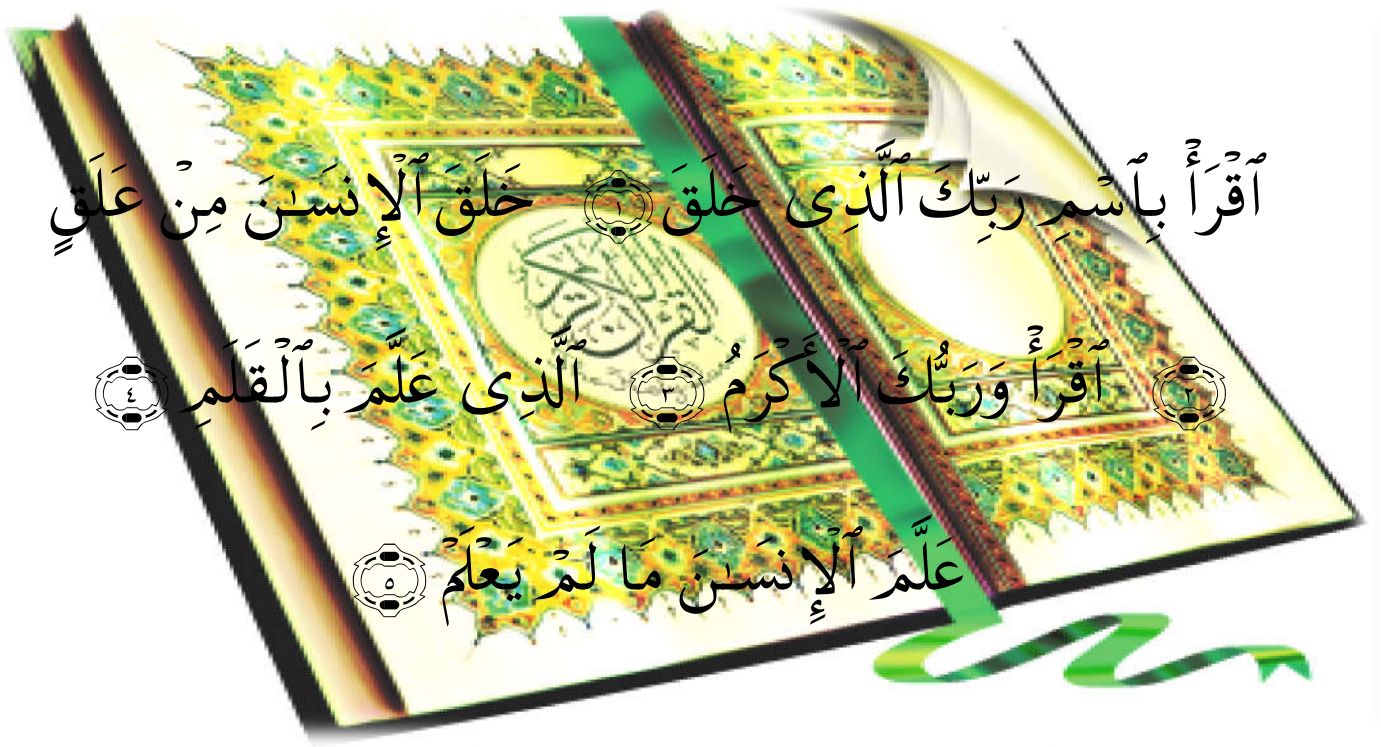 ٱقْرَأْ بِٱسْمِ رَبِّكَ ٱلَّذِى خَلَقَ ١ خَلَقَ ٱلْإِنسَـٰنَ مِنْ عَلَقٍ
٢ ٱقْرَأْ وَرَبُّكَ ٱلْأَكْرَمُ ٣ ٱلَّذِى عَلَّمَ بِٱلْقَلَمِ ٤
عَلَّمَ ٱلْإِنسَـٰنَ مَا لَمْ يَعْلَمْ ٥